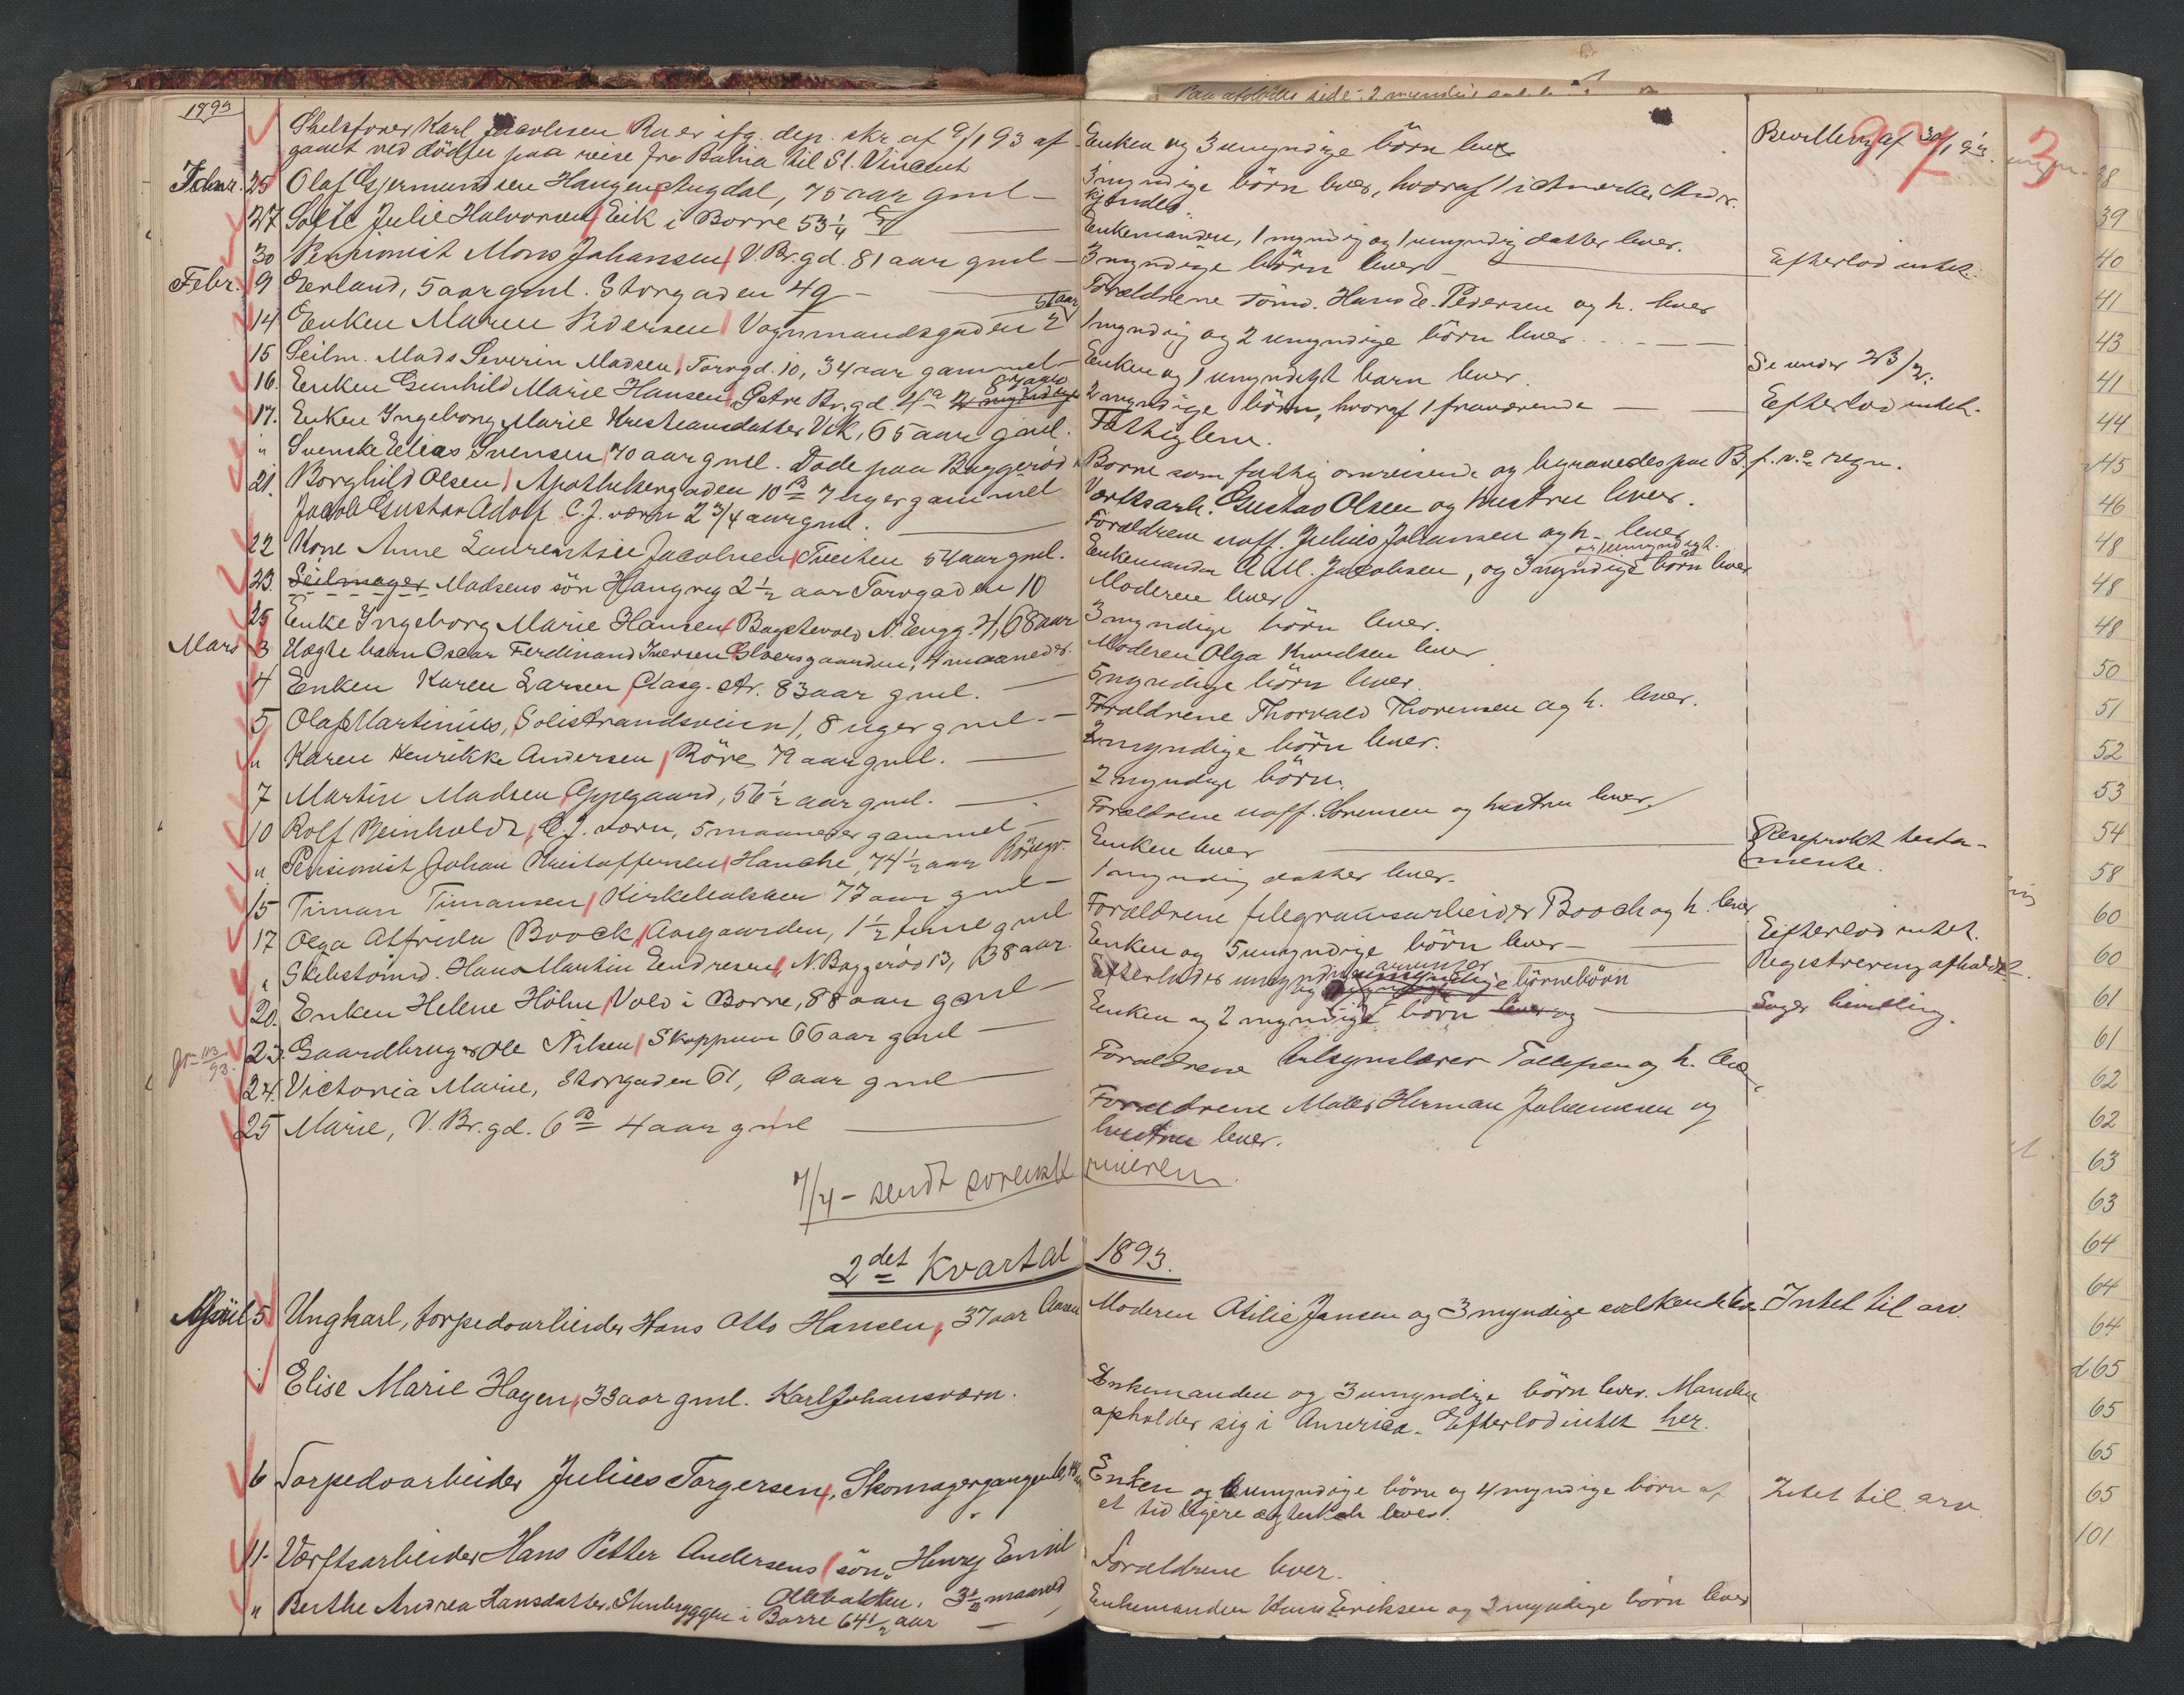 1893
Karl Jacobsen Ra er ifg. dep. skr. af 9/1 93 af
gaaet ved döden paa reise fra Bahia til St. Vincent
Enken og 3 umyndige börn lever
Bevilling af 30/1 93.
97
3
25 Olaf Gjermundsen Haugen, 75 aar gml
3 myndige börn lever, hvoraf 1 i Amerika,
27 Sofie Julie Halvorsen, Eik i Borre 53 1/4
Enkemanden, 1 myndig og 1 umyndig datter lever.
30 Pensionist Mons Johansen, V. Br.gd. 81 aar gml
3 myndige börn lever
Efterlod intet.
Febr. 9 Erland, 5 aar gml. Storgaden 49
Forældrene tömd. Hans E. Pedersen og h. lever
14 Enken Maren Pedersen, Vognmandsgaden 2
1 myndig og 2 umyndige börn lever
15 Seilm. Mads Severin Madsen, Torvgd. 10, 34 aar gammel
Enken og 1 umyndigt barn lever.
Se under 23/2.
16. Enken Gunhild Marie Hansen, Östre Br.gd. 4a
2 myndige börn, hvoraf 1 fraværende
Efterlod intet.
17. Enken Ingeborg Marie Kristiansdatter Vik, 65 aar gml.
Fattiglem.
" Svenske Elias Svensen, 70 aar gml. Döde paa Baggeröd i
Borre som fattig omreisende og begravedes paa B. f. v.s regn.
21. Borghild Olsen, Apothekergaden 10 B 7 uger gammel
Værftsarb. Gustav Olsen og hustru lever.
Jacob Gustav Adolf C. J. værn 2 3/4 aar gml.
Forældrene uoff. Julius Johansen og h. lever
22 Kone Anne Laurentsie Jacobsen, Tveiten 54 aar gml.
Enkemanden A. M. Jacobsen, og 3 myndige börn lever
og 1 umyndigt.
23. Seilmager Madsens sön 2 1/2 aar Torvgaden 10
Moderen lever
25 Enke Ingeborg Marie Hansen, N. Engg. 4, 68 aar
3 myndige börn lever.
Mars 3 Uægte barn Oscar Ferdinand Iversen, 4 maaneder.
Moderen Olga Knudsen lever
4 Enken Karen Larsen, Aasg. str. 83 aar gml.
5 myndige börn lever.
5 Olaf Martinius, Solistrandsveien 1, 8 uger gml.
Forældrene Thorvald Thorensen og h. lever.
" Karen Henrikke Andersen, Röre 79 aar gml.
2 myndige börn lever.
7 Martin Madsen, Gypegaard, 56 1/2 aar gml.
2 myndige börn.
10 Rolf Reinholdt, C. J. værn, 5 maaneder gammel
Forældrene uoff. Sörensen og hustru lever.
" Pensionist Johan Kristoffersen, Hauche, 74 1/2 aar
Enken lever
Resiprokt testamente.
15 Timan Timansen, Kirkebakken 77 aar gml
1 myndig datter lever.
17 Olga Alfrida Boock, Aasgaarden, 1 1/2 time gml
Forældrene telegramsarbeider Boock og h. lever
" Skibstömd. Hans Martin Endresen, N. Baggeröd 13, 38 aar.
Enken og 5 umyndige börn lever
Efterlod intet.
20. Enken Helene Hölm, Vold i Borre, 88 aar gml
börnebörn
Registrering afholdt.
23. Gaardbruger Ole Nilsen, Skoppum 66 aar gml
Enken og 2 myndige börn lever
Söger bevilling.
24. Victoria Marie, Storgaden 61, 6 aar gml
Forældrene Tollefsen og h. lever
25 Marie, V. Br.gd. 6 B 4 aar gml
Forældrene Maler Herman Johannesen og
hustru lever.
7/4 - sendt sorenskriveren
2det Kvartal 1893.
April 5 Ungkarl, torpedoarbeider Hans Otto Hansen, 37 aar Aasen
Moderen Otilie Jansen og 3 myndige sødskende lever
Intet til arv.
Elise Marie Hagen, 33 aar gml. Karljohansværn.
Enkemanden og 3 umyndige börn lever. Manden
opholder sig i America. Efterlod intet her.
6 Torpedoarbeider Julius Torgersen, Skomagergangen
Enken og umyndige börn og 4 myndige börn af
et tidligere ægteskab lever.
Intet til arv
11. Værftsarbeider Hans Petter Andersens sön Henry Emil
Ollebakken, 3 1/2 maaned
Forældrene lever.
" Berthe Andrea Hansdatter, Stenbryggen i Borre 64 1/2 aar
Enkemanden Hans Eriksen og 3 myndige börn lever
38
39
40
41
43
41
44
45
46
48
48
48
50
51
52
53
54
58
60
60
61
61
62
62
63
63
64
64
64
65
65
65
65
101